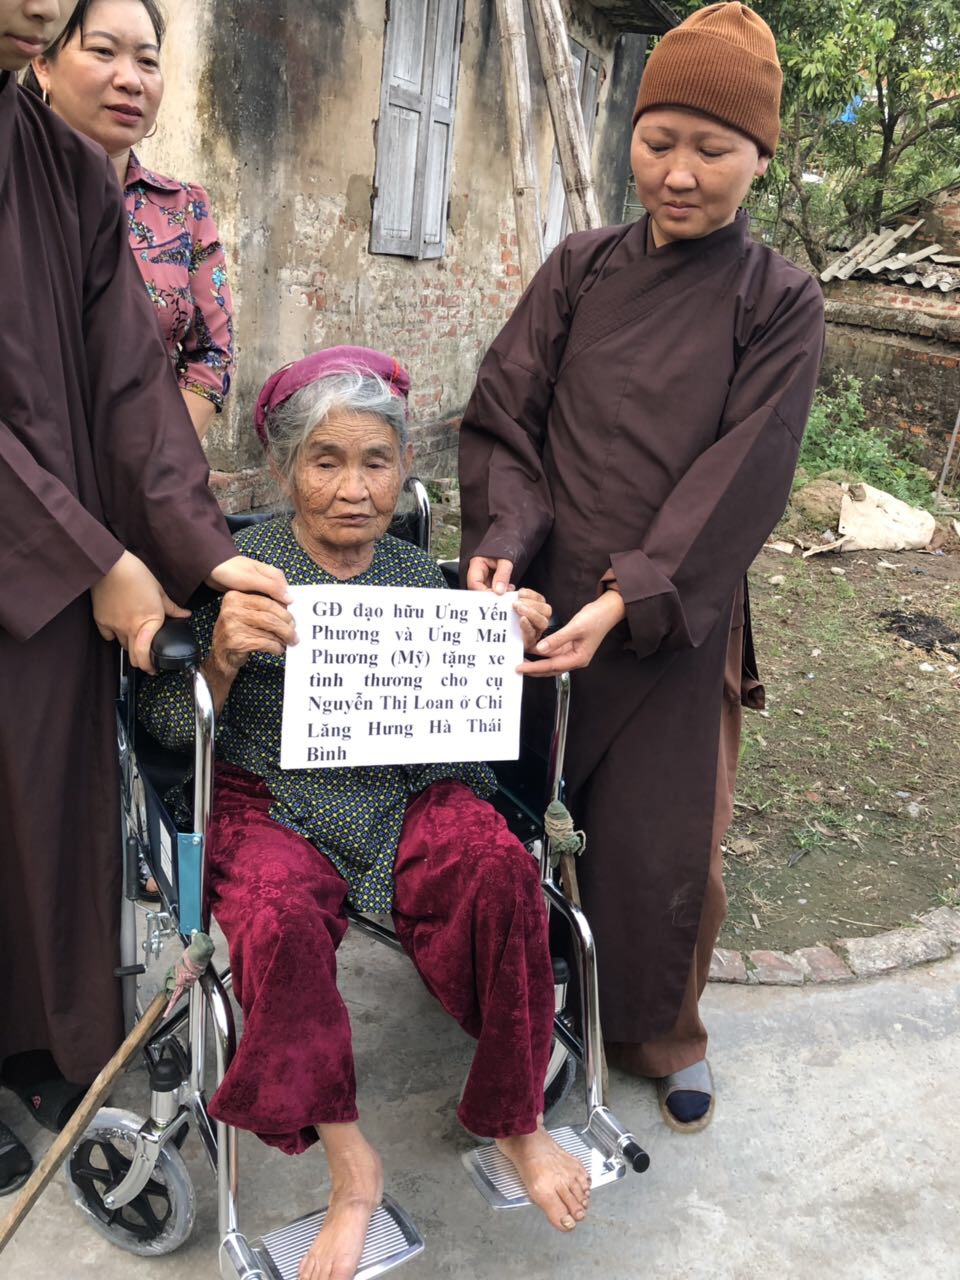 GĐ đạo hữu Ưng Yến
Phương và Ưng Mai
Phương (Mỹ) tặng xe
tình thương cho cụ
Nguyễn Thị Loan ở Chi
Lăng Hưng Hà Thái
Bình